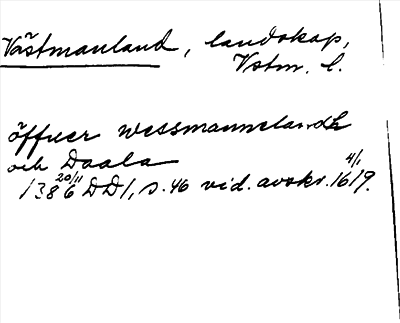 Västmanland, landskap,
Vstm. l.
öffuer wessmannelandh
och Daala
1386 20/11 DD1, s. 46 vid. avskr. 4/1 1619.